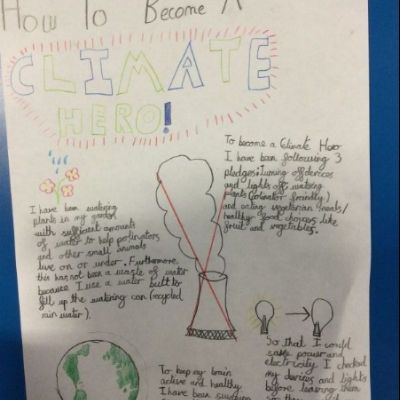 How To Become A
CLIMATE
HERO!
To become a Climate Hero
I have been following 3
pledges: turning off devices
and lights off, watering
plants (pollinator friendly)
and eating vegetarian meals/
healthy food choices like
fruit and vegetables.
I have been watering
plants in my garden
with sufficient amounts
of water to help pollinators
and other small animals
live on or under. Furthermore,
this has not been a waste of water
because I use a water butt to
fill up the watering can (recycled
rain water).
So that I could
save power and
electricity I checked
my devices and lights
before leaving them
To keep my brain
active and healthy
I have been